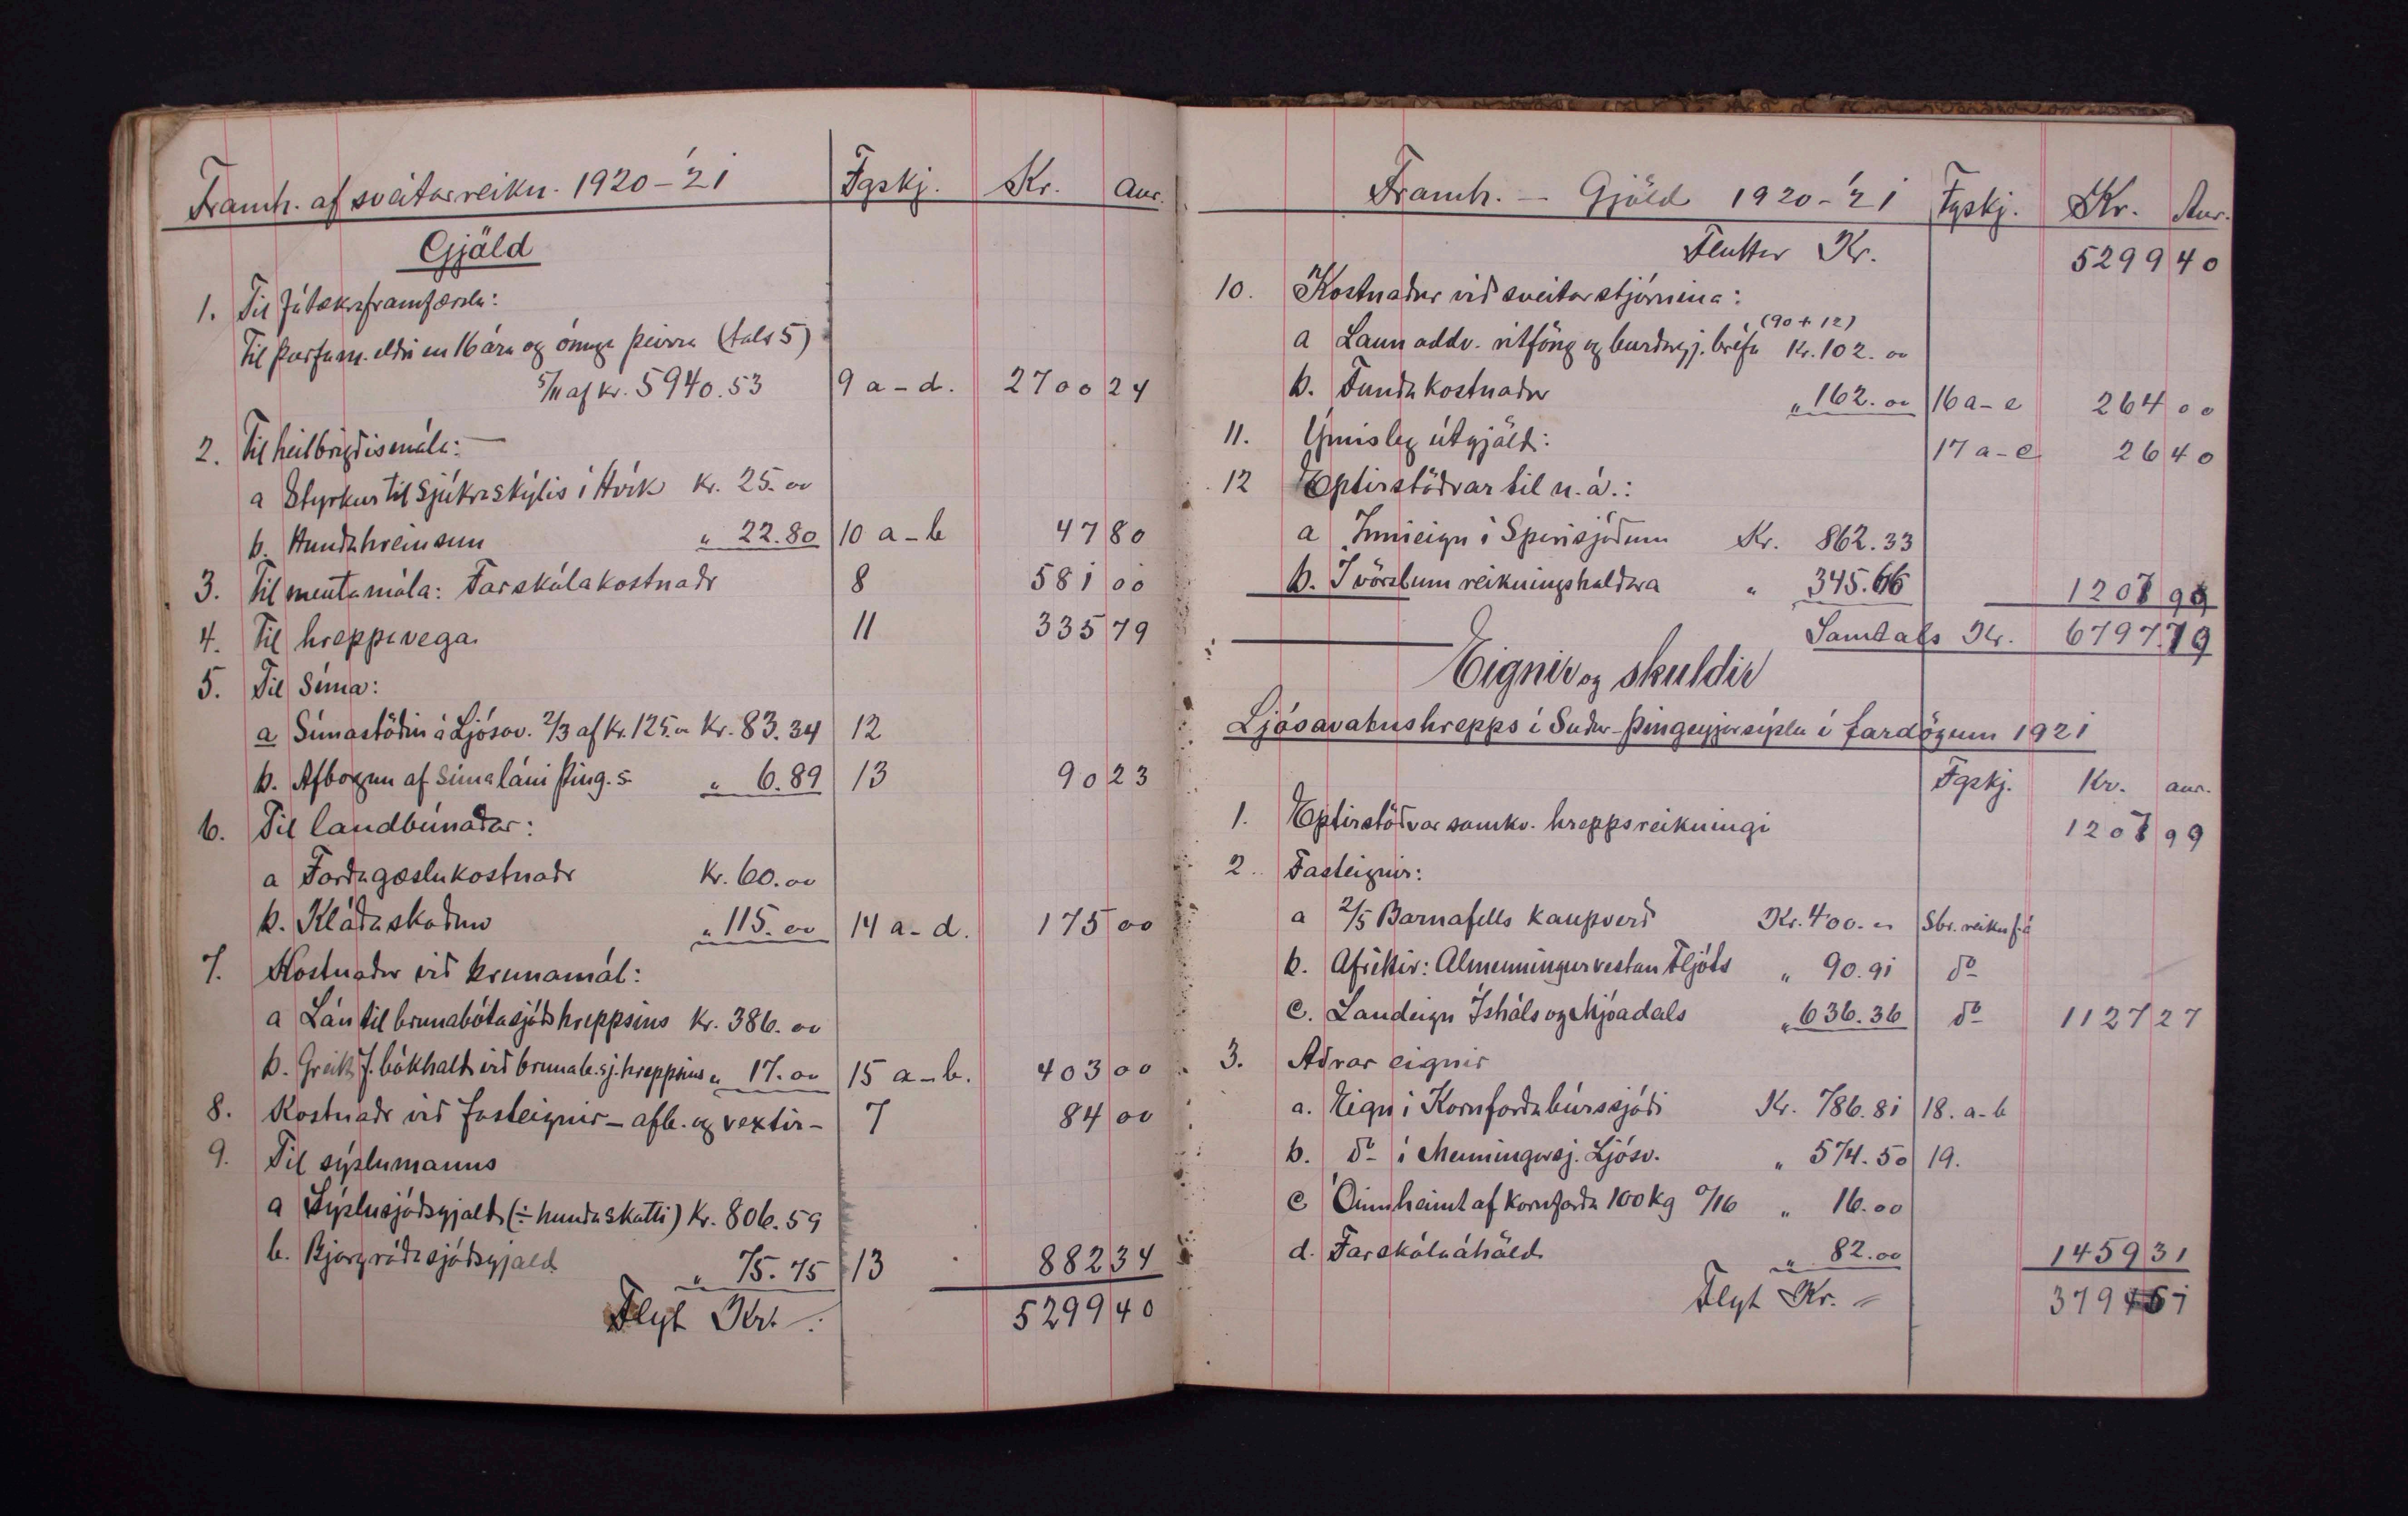 Framh. af sveitarreikn. 1920-'21 Fgskj. Kr. Aur.
Gjöld
1. Til fátækraframfærslu:
Til þurfam. eldri en 16 ára og ómaga þeirra (tals 5)
5/11 af kr. 5940.53 9 a-d. 2700 24
2. Til heilbrigdismála:
a Styrkur til Sjúkraskýlis í Húsk kr. 25.00
b. Hundahreinsun " 22.80 10 a-b 47 80
3. Til mentamála: Farskólakostnadr 8 581 00
4. Til hreppsvega 11 335 79
5. Til Síma:
a Símastödin á Ljósav. 2/3 af kr. 125.00 kr. 83.34 12
b. Afborgun af símaláni Þing.s. " 6.89 13 90 23
6. Til landbúnadar:
a Fordagæslukostnadr kr. 60.00
b. Kládaskodun " 115.00 14 a-d. 175 00
7. Kostnadur vid brunamál:
a Lán til brunabótasjóds hreppsins kr. 386.00
b. Greitt f. bókhald vid brunab.sj. hreppsins " 17.00 15 a-b. 403 00
8. Kostnadr vid fasteignir - afb. og vextir - 7 84 00
9. Til sýslumanns
a Sýslusjódsgjald (÷ hundaskatti) kr. 806.59
b. Bjargrádasjódsgjald " 75.75 13 882 34
Flyt Kr. 5299 40
Framh. - Gjöld 1920-'21 Fgskj. Kr. Aur.
Fluttar Kr. 5299 40
10. Kostnadur vid sveitarstjórnina:
(90 + 12)
a Laun oddv. ritföng og burdargj. bréfa Kr. 102.00
b. Fundakostnadur " 162.00 16 a-e 264 00
11. Ýmisleg útgjöld: 17 a-e 26 40
12 Eptirstödvar til n. á.:
a Innieign í Sparisjódum Kr. 862.33
b. Í vörslum reikningshaldara " 345.66 1207 99
Samtals Kr. 6797.79
Eignir og skuldir
Ljósavatnshrepps í Sudur-Þingeyjarsýslu í fardögum 1921
Fgskj. Kr. aur.
1. Eptirstödvar samkv. hreppsreikningi 1207 99
2. Fasteignir:
a 2/5 Barnafells kaupverd Kr. 400.00 Sbr. reikn f.á
b. Afréttir: Almenningur vestan Fljóts " 90.91 do
c. Landeign Íshóls og Mjóadals " 636.36 do 1127 27
3. Adrar eignir
a. Eign í Kornfordabúrssjódi Kr. 786.81 18. a-b
b. do í Menningarsj. Ljósv. " 574.50 19.
c Óinnheimt af kornforda 100 kg 0/16 " 16.00
d. Farskólaáhöld " 82.00 1459 31
Flyt Kr. 379